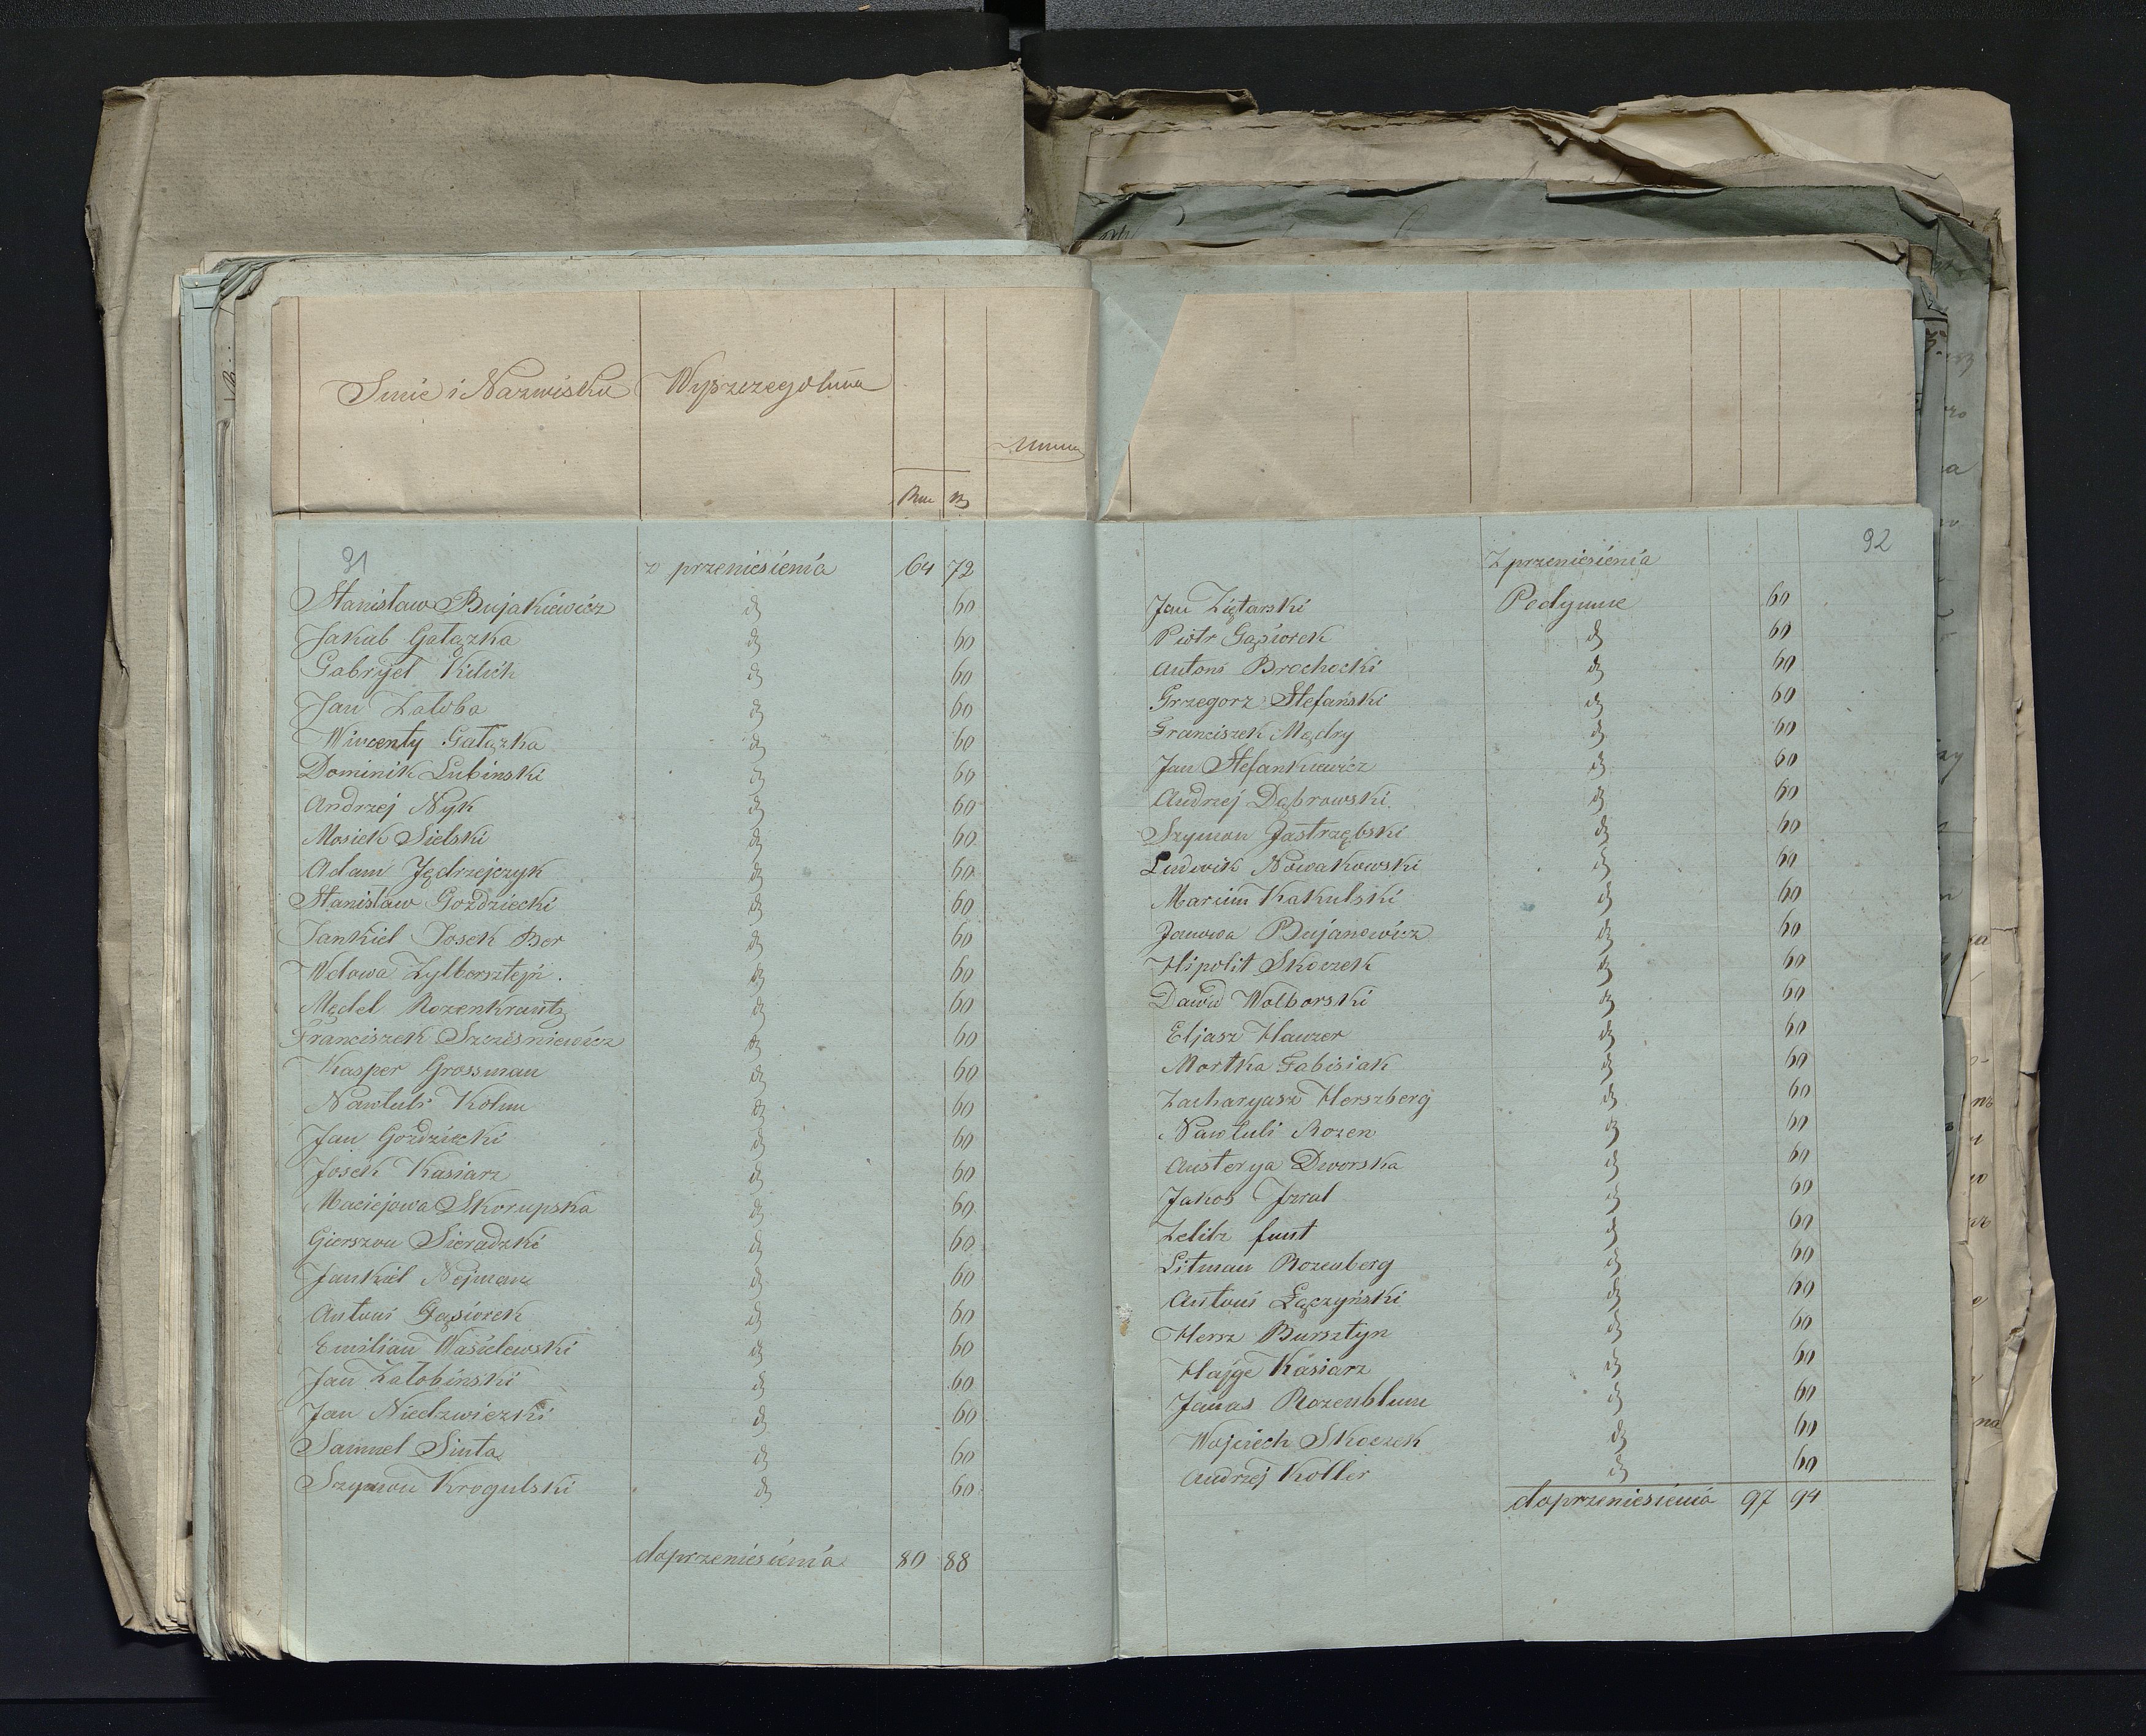 Imie i Nazwisko Wyszczegolnia
Rur K
91 z przeniesienia 64 72
Stanisław Bujakiewicz d 60
Jakub Gałązka d 60
Gabryel Kilich d 60
Jan Załoba d 60
Wincenty Gałązka d 60
Dominik Lubinski d 60
Andrzej Nyk d 60
Mosiek Sielski d 60
Adam Jędrzejczyk d 60
Stanisław Gozdziecki d 60
Jankiel Josek Ber d 60
Wdowa Zylbersztejn d 60
Mędel Rozenkrantz d 60
Franciszek Szcześniewicz d 60
Kasper Grossman d 60
Nawtuli Kohn d 60
Jan Gozdziecki d 60
Josek Kasiarz d 60
Maciejowa Skorupska d 60
Gierszon Sieradzki d 60
Jankiel Nejman d 60
Antoni Gąsiorek d 60
Emilian Wasielewski d 60
Jan Załobinski d 60
Jan Niedzwiezki d 60
Samuel Sinta d 60
Szymon Krogulski d 60
do przeniesienia 80 88
92
Z przeniesienia
Jan Ziętarski Podymne 60
Piotr Gąsiorek d 60
Antoni Brochocki d 60
Grzegorz Stefański d 60
Franciszek Mądry d 60
Jan Stefankiewicz d 60
Andrzej Dąbrowski d 60
Szymon Jastrzębski d 60
Ludwik Nowakowski d 60
Marcim Kakulski d 60
Janowa Bujanowicz d 60
Hipolit Skoczek d 60
Dawid Wolborski d 60
Eljasz Hauzer d 60
Mortka Fabisiak d 60
Zacharyasz Herszberg d 60
Nawtuli Rozen d 60
Austerya Dworska d 60
Jakob Izral d 60
Zelik funt d 60
Litman Rozenberg d 60
Antoni Łączyński d 60
Hersz Bursztyn d 60
Hajge Kasiarz d 60
Jonas Rozenblum d 60
Wojciech Skoczek d 60
Andrzej Koller d 60
do przeniesienia 97 94